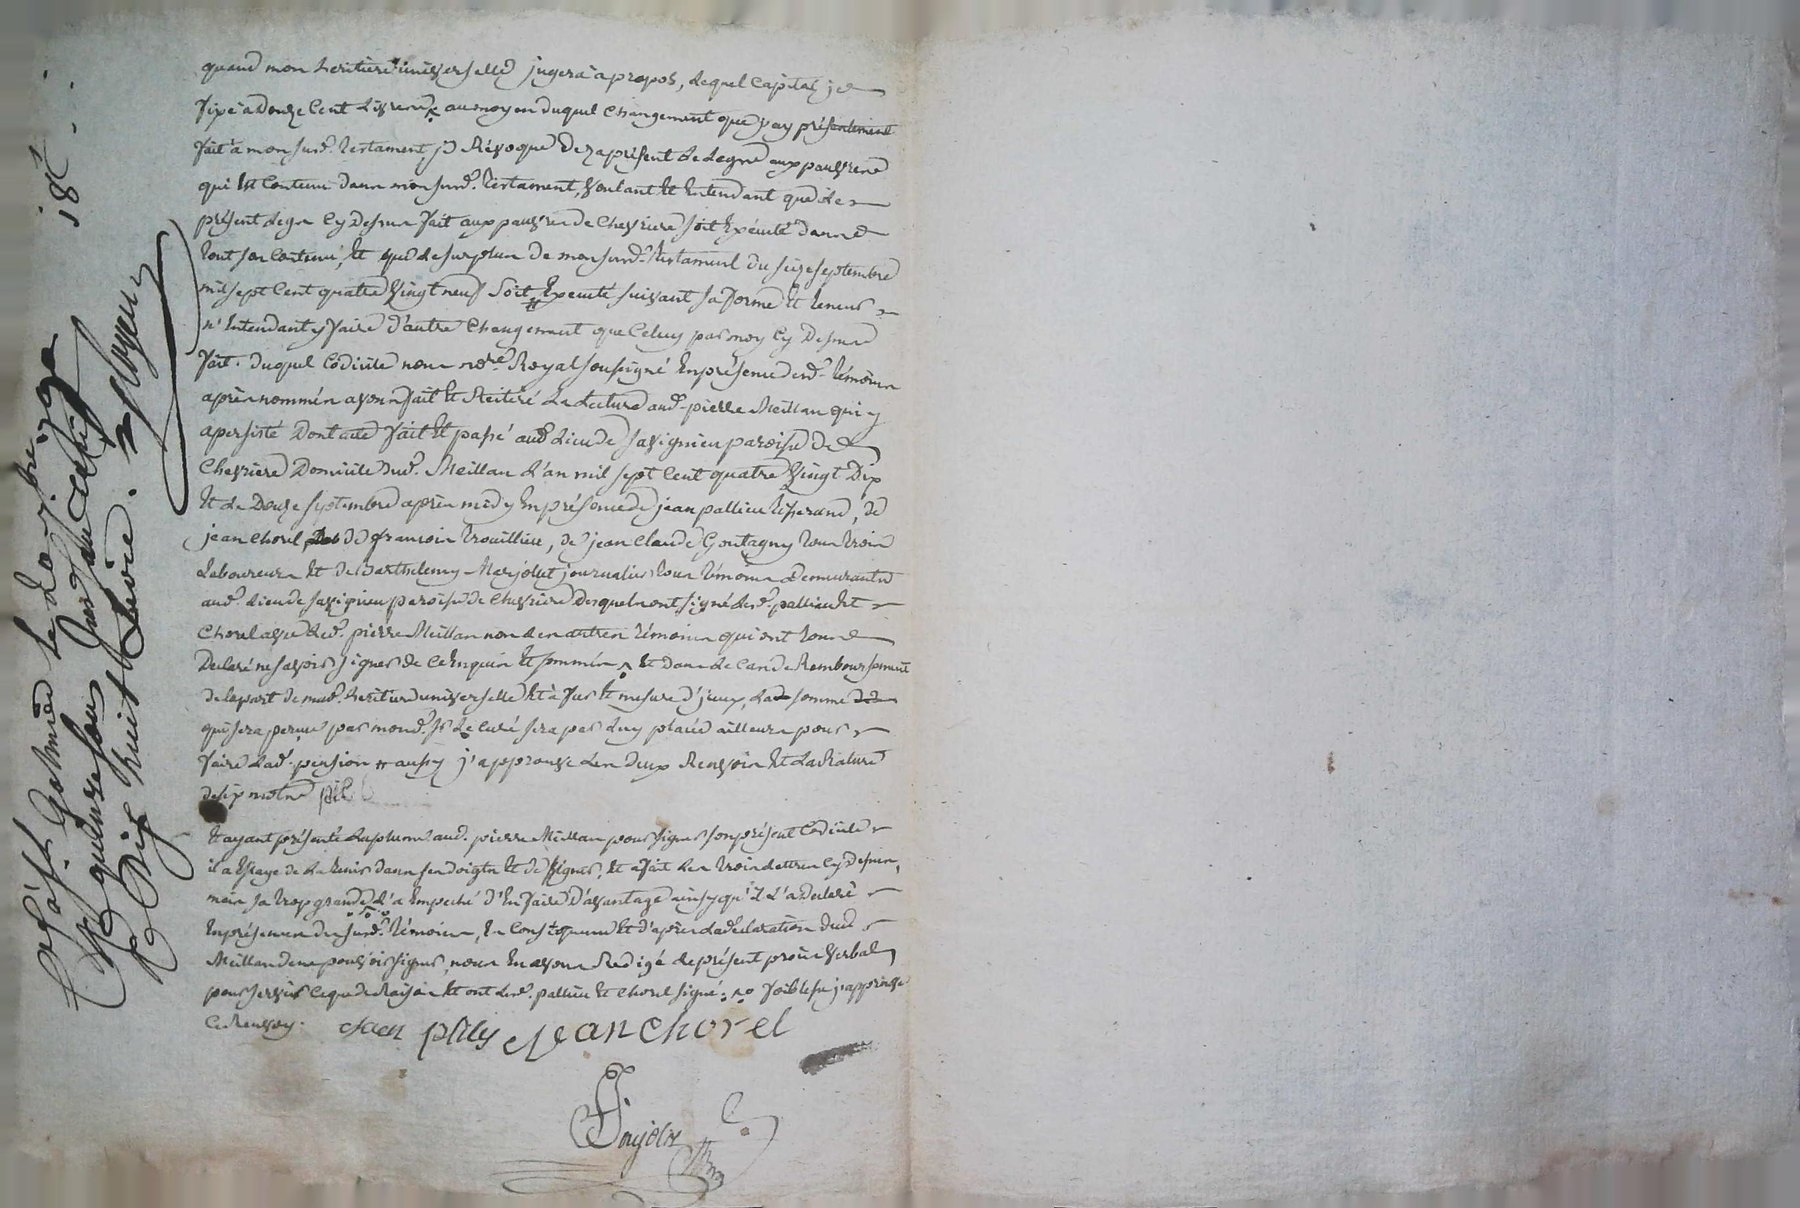 quand mon heritiere universelle jugera a propos, lequel capital je
fixe a Douze Cent Livres au moyen duquel changement que j'ay présentement
fait a mon susd. testament je Révoque Dez aprésent le legue aux pauvres
qui Est Contenu dans mon susd. Testament, voulant Et Entendant que le
présent legs Cy Dessus fait aux pauvres de Chevriere soit Exécuté dans
tout son Contenu, Et que le surplus de mon susd. Testament du seize septembre
mil sept Cent quatre vingt neuf Soit Executé suivant sa forme Et teneur
n'Entendant y faire d'autre Changement que Celuy par moy Cy Dessus
fait. Duquel Codicile nous no.re Royal soussigné En présence desd. témoins
après nommés avons fait Et Réiteré La Lecture aud. pierre Meillan qui y
a persisté Dont acte fait Et passé aud. Lieu de Savignieu paroisse de
Chevriere Domicile dud. Meillan L'an mil sept Cent quatre vingt Dix
Et Le Douze septembre après midy En présence de jean pallieu tisserand, de
jean Chorel, de françois trouillieu, de jean Claude Goutagny tous trois
Laboureurs Et de Barthelemy Marjollet journalier tous témoins Demeurants
aud. Lieu de Savignieu paroisse de Chevriere Desquels ont signé lesd. pallieu Et
Chorel avec led. pierre Meillan non les autres témoins qui ont tous
Declaré ne savoir signer de Ce Enquis Et sommés Et Dans le Cas de Remboursement
de la part de mad. heritiere universelle Et à fur Et mesure d'jceux, La somme
qui sera perçue par mond. Sr le Curé sera par luy placée ailleurs pour
faire Lad. pension # aussy j'approuve Les Deux Renvois Et La Rature
de six mots
Et ayant présenté La plume aud. pierre Meillan pour signer son présent Codicile
il a Essayé de La tenir dans ses doigts Et de signer, Et a fait Les trois Lettres Cy Dessus,
mais sa trop grande L'a Empeché d'En faire D'avantage ainsy qu'il L'a Declaré
En présence des susd. témoins, En Conséquence Et d'après La declaration dud.
Meillan de ne pouvoir signer, nous En avons Redigé Le présent procès verbal
pour servir Ce que de Raison Et ont lesd. pallieu Et Chorel signé. foiblesse j'approuve
Ce Renvoy.
Jean Chorel
18
quinze sous
Dix huit Livre.